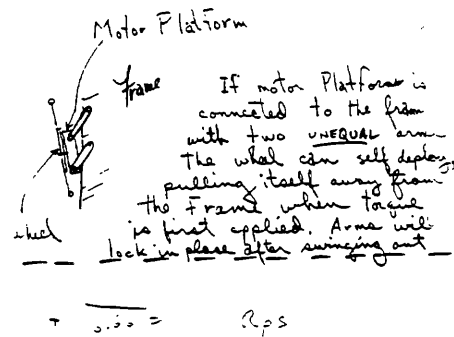 Motor Platform
frame
If motor Platform is
connected to the fram
with two UNEQUAL arm
The wheel can self deploy
pulling itself away from
the Frame when torque
is first applied. Arms will
wheel
lock in place after swinging out
=
Rps